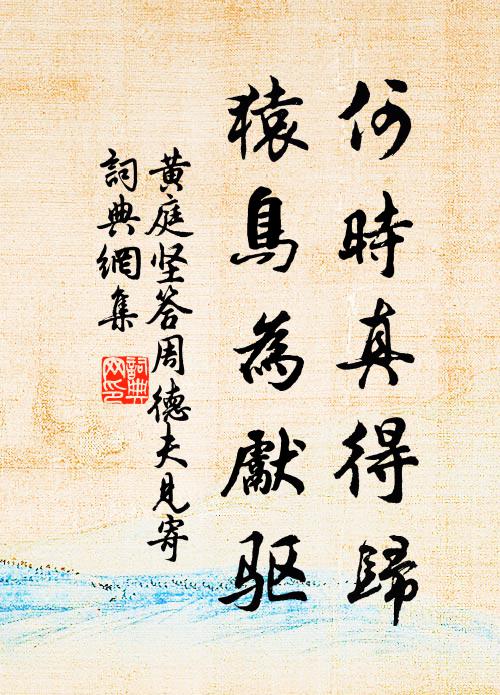 何時真得歸
猿鳥為獻驅
黄庭坚答周德夫見寄
詞典網集
詞典
网印